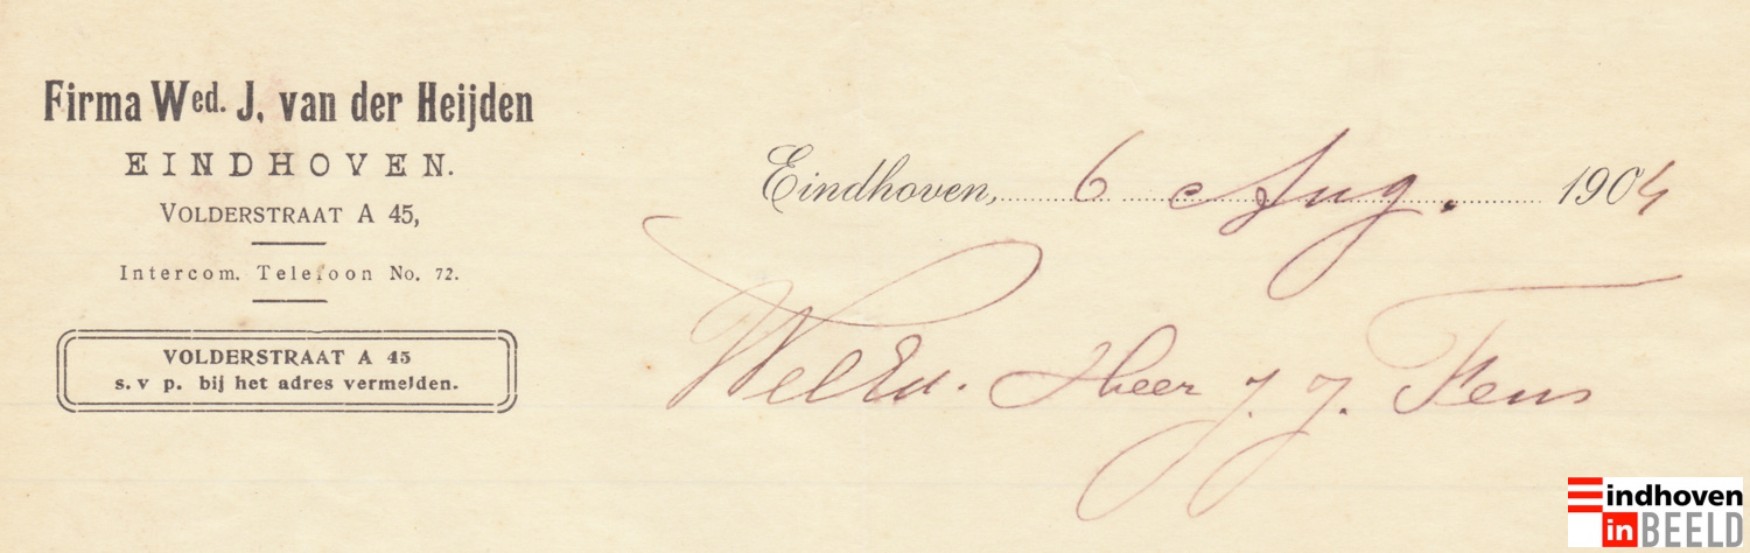 Firma Wed. J. van der Heijden
EINDHOVEN.
VOLDERSTRAAT A 45,
Intercom. Telefoon No. 72.
VOLDERSTRAAT A 45
s. v p. bij het adres vermelden.
Eindhoven, 6 Aug. 1904
WelEd. Heer J. J. Fens
Eindhoven
in BEELD